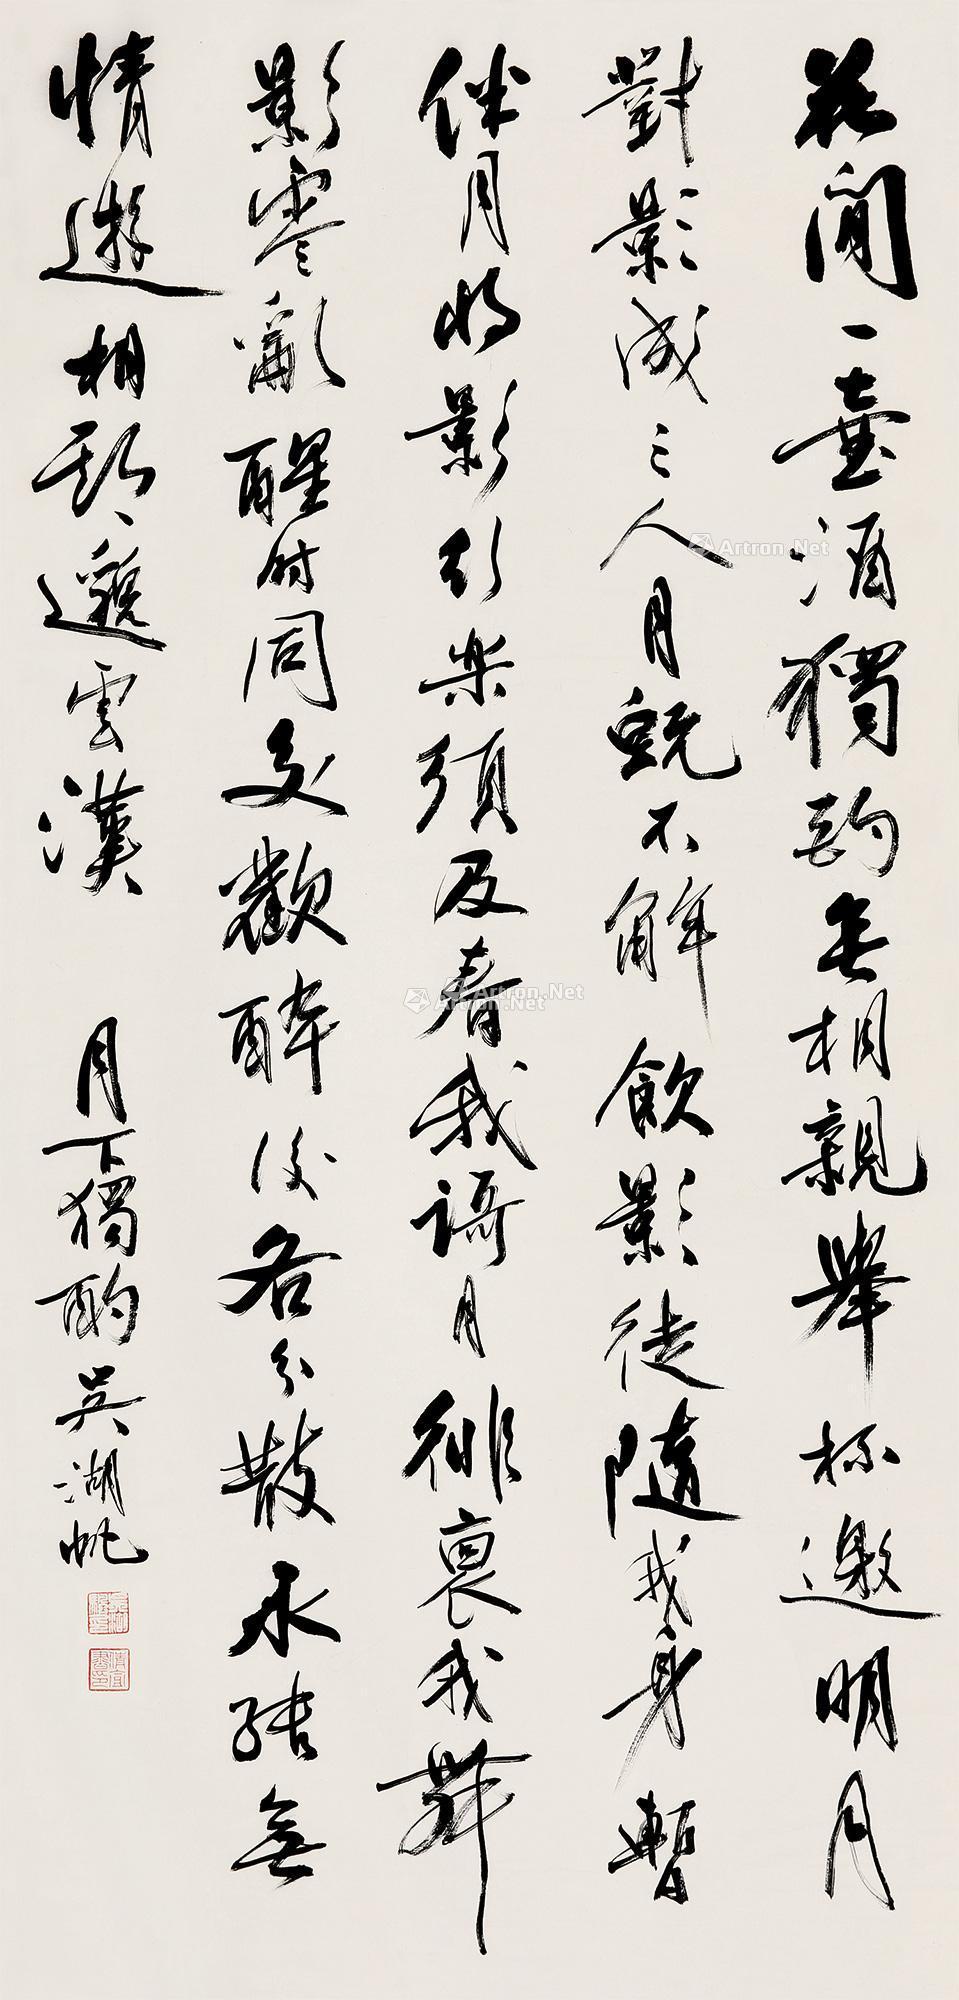 花間一壺酒獨酌无相親舉杯邀明月
對影成三人月既不解飲影徒隨我身暫
伴月將影行樂須及春我謌月徘徊我舞
影零亂醒時同交歡醉後各分散永結無
情遊相期邈雲漢 月下獨酌 吳湖帆
Artron.Net
Artron.Net
Artron.Net